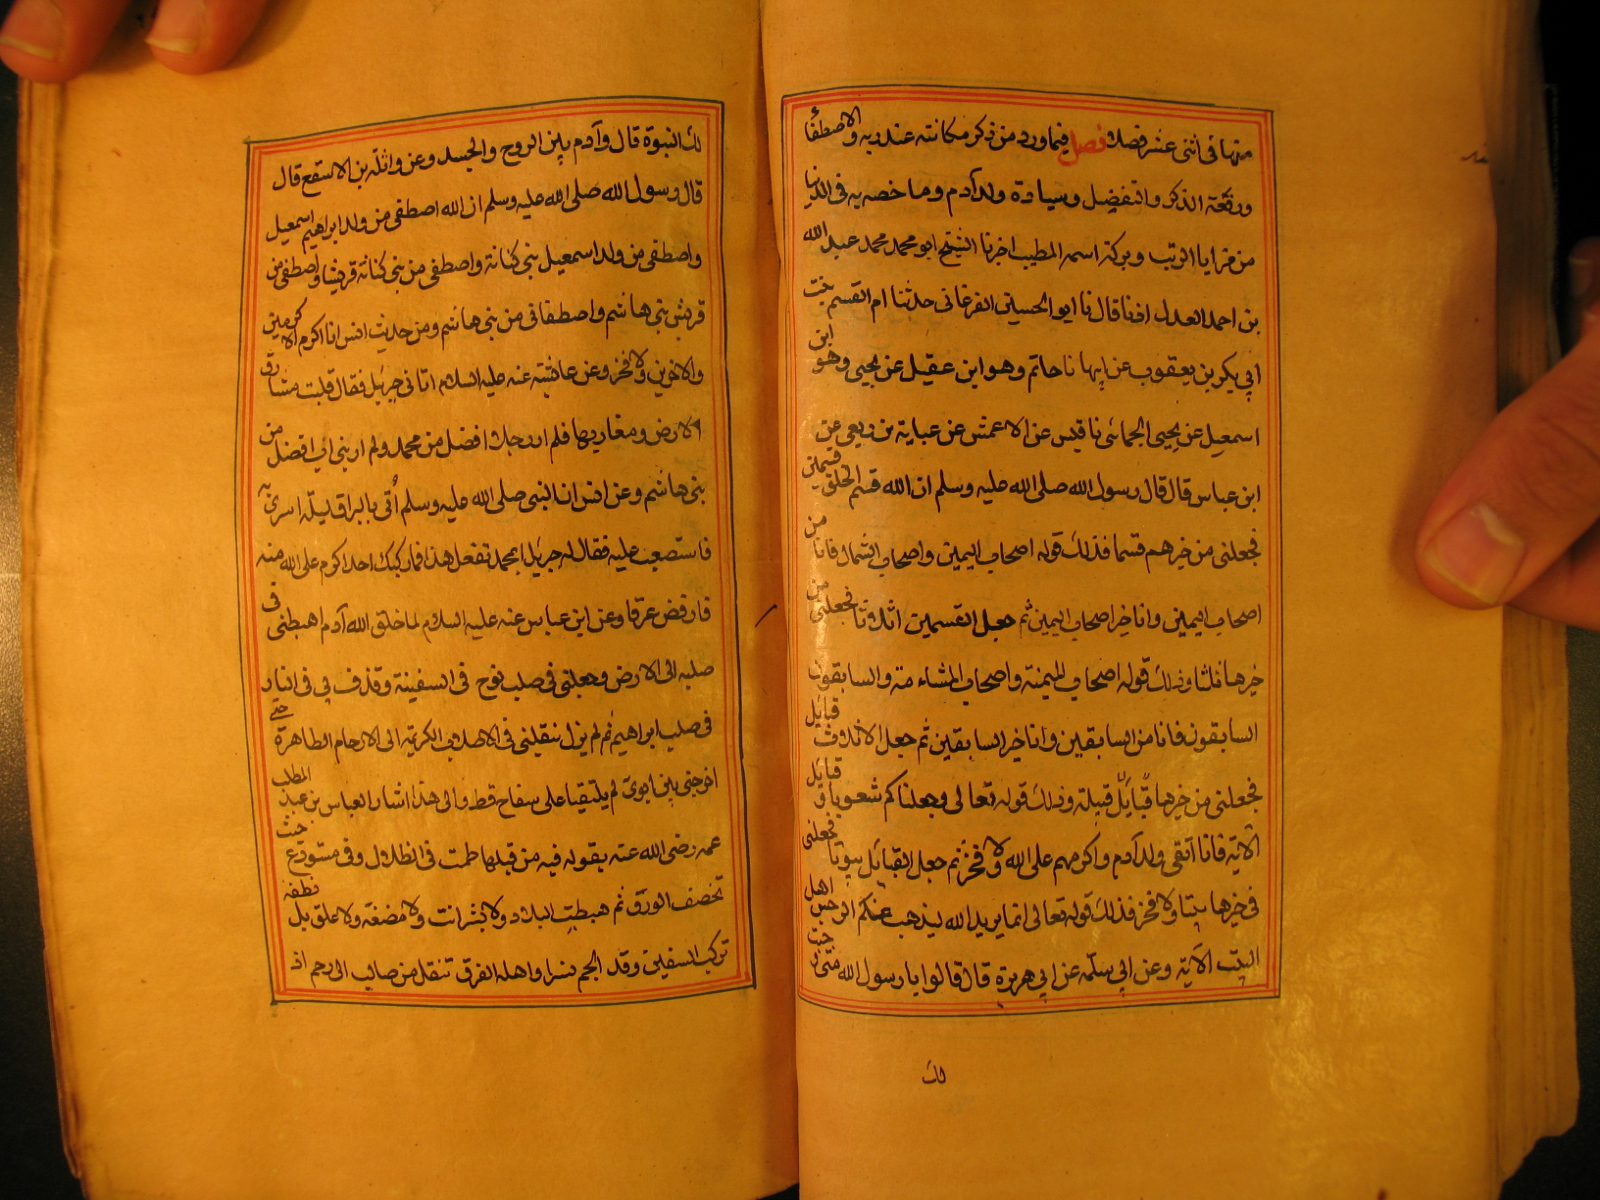 منها فى اثنى عشر فصلا فصل فيما ورد من ذكر مكانته عند ربه والاصطفا
ورفعة الذكر والتفضيل وسيادة ولد آدم وما خصه به فى الدنيا
من مزايا الرتب وبركة اسمه المطيب اخبرنا الشيخ ابو محمد محمد عبد الله
بن احمد العدل اذنا قال نا ابو الحسين الفرغانى حدثتنا ام القسم بنت
ابى بكر بن يعقوب عن ابيها نا حاتم وهو ابن عقيل عن يحيى وهو ابن
اسمعيل عن يحيى الحمانى نا قيس عن الاعمش عن عباية بن ربعى عن
ابن عباس قال قال رسول الله صلى الله عليه وسلم ان الله قسم الخلق قسمين
فجعلنى من خيرهم قسما فذلك قوله اصحاب اليمين واصحاب الشمال فانا من
اصحاب اليمين وانا خير اصحاب اليمين ثم جعل القسمين اثلاثا فجعلنى من
خيرها ثلثا وذلك قوله اصحاب الميمنة واصحاب المشاءمة والسابقون
السابقون فانا من السابقين وانا خير السابقين ثم جعل الاثلاث قبايل
فجعلنى من خيرها قبايل قبيلة وذلك قوله تعالى وجعلناكم شعوبا و قبايل
الآية فانا اتقى ولد آدم واكرمهم على الله ولا فخر ثم جعل القبايل بيوتا فجعلنى
فى خيرها بيتا ولا فخر فذلك قوله تعالى انما يريد الله ليذهب عنكم الرجس اهل
البيت الآية وعن ابى سلمة عن ابى هريرة قال قالوا يا رسول الله متى وجبت
لك
لك النبوة قال وآدم بين الروح والجسد وعن واثلة بن الاسقع قال
قال رسول الله صلى الله عليه وسلم ان الله اصطفى من ولد ابراهيم اسمعيل
واصطفى من ولد اسمعيل بنى كنانة واصطفى من بنى كنانة قريشا واصطفى من
قريش بنى هاشم واصطفانى من بنى هاشم ومن حديث انس انا اكرم الاولين
والاخرين ولا فخر وعن عائشة عنه عليه السلام اتانى جبريل فقال قلبت مشارق
الارض ومغاربها فلم ار رجلا افضل من محمد ولم ار بنى اب افضل من
بنى هاشم وعن انس ان النبى صلى الله عليه وسلم أتى بالبراق ليلة اسرى به
فاستصعب عليه فقال له جبريل ابمحمد تفعل هذا فما ركبك احد اكرم على الله منه
فارفض عرقا وعن ابن عباس عنه عليه السلام لما خلق الله آدم اهبطنى فى
صلبه الى الارض وجعلنى فى صلب نوح فى السفينة وقذف بى فى النار
فى صلب ابراهيم ثم لم يزل ينقلنى فى الاصلاب الكريمة الى الارحام الطاهرة حتى
اخرجنى بين ابوى لم يلتقيا على سفاح قط والى هذا اشار العباس بن عبد المطلب
عمه رضى الله عنه بقوله فيه من قبلها طبت فى الظلال وفى مستودع حيث
تخصف الورق ثم هبطت البلاد ولا بشر انت ولا مضغة ولا علق بل نطفة
تركب السفين وقد الجم نسرا واهله الغرق تنقل من صالب الى رحم اذ